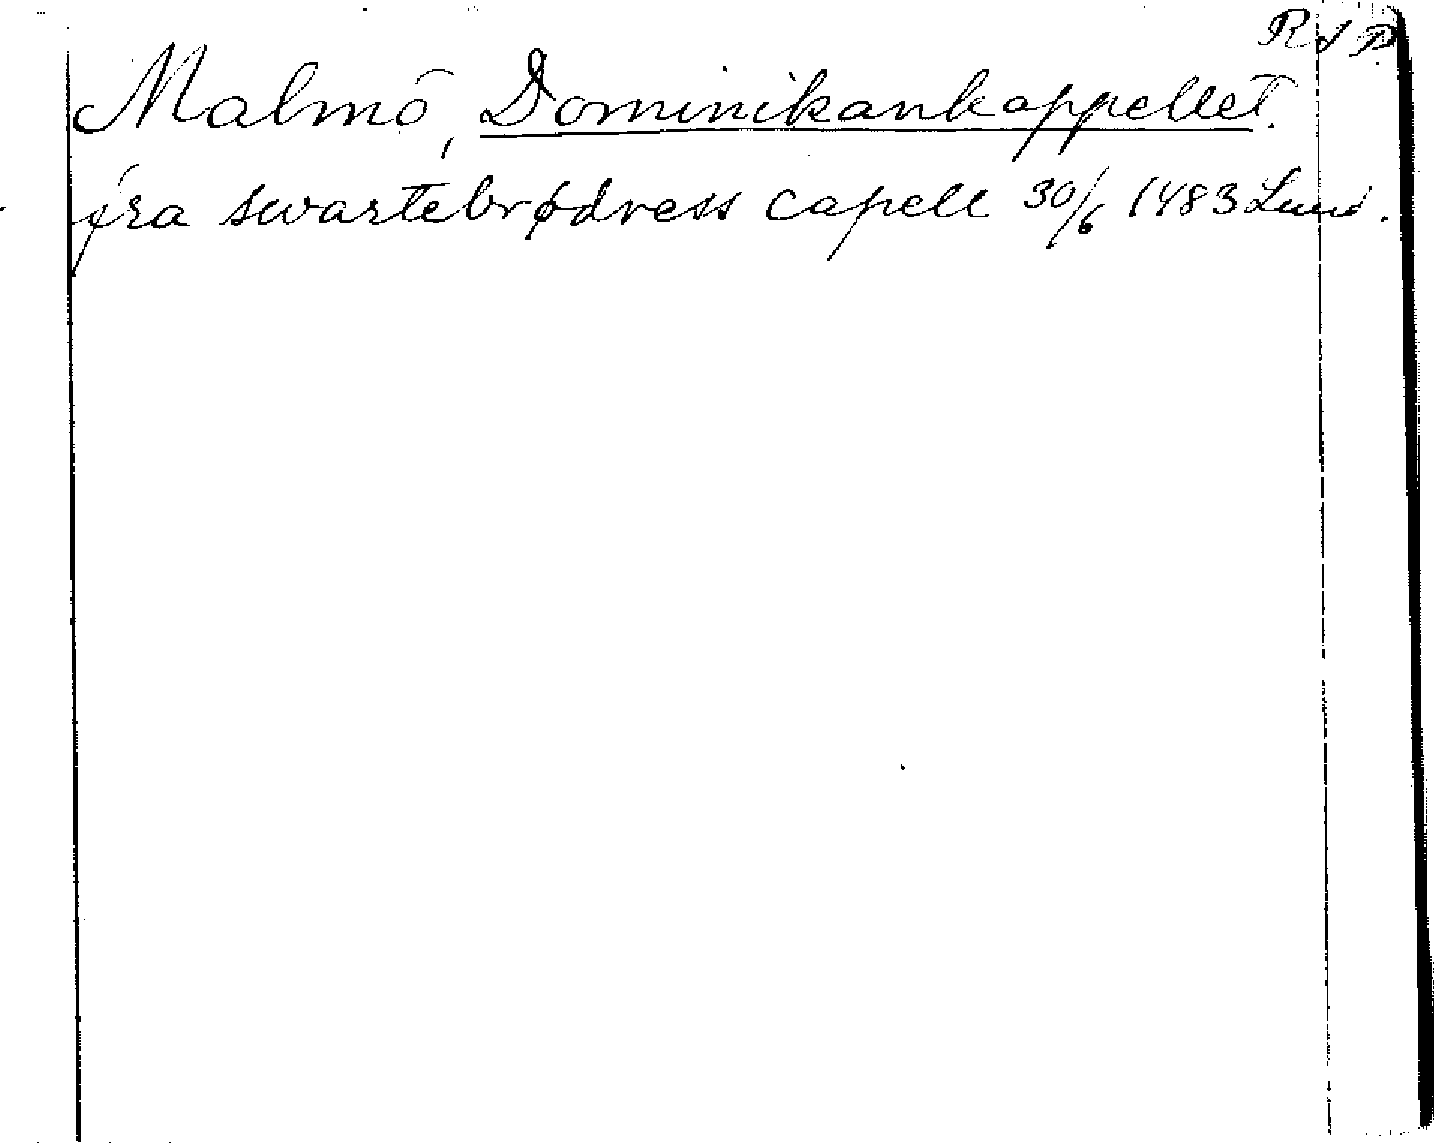 R I P.
Malmö, Dominikankappellet.
fra swartebrødress capell 30/6 1483 Lund.